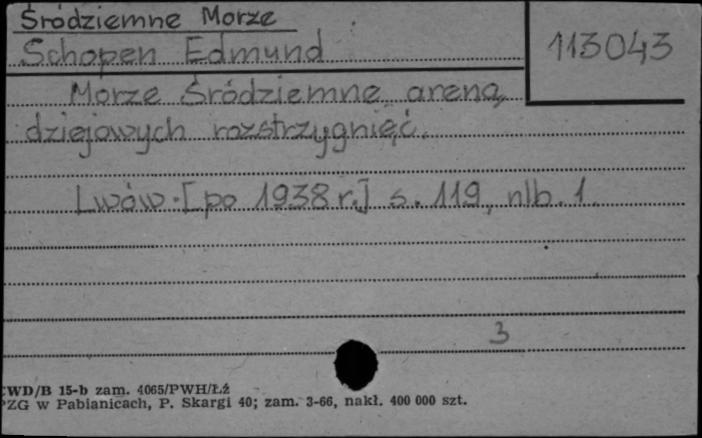 Śródziemne Morze
Schopen Edmund
113043
Morze Śródziemne areną
dziejowych rozstrzygnięć.
Lwów. [po 1938 r.] s. 119, nlb. 1.
3
CWD/B 15-b zam. 4065/PWH/Łź
PZG w Pabianicach, P. Skargi 40; zam. 3-66, nakł. 400 000 szt.